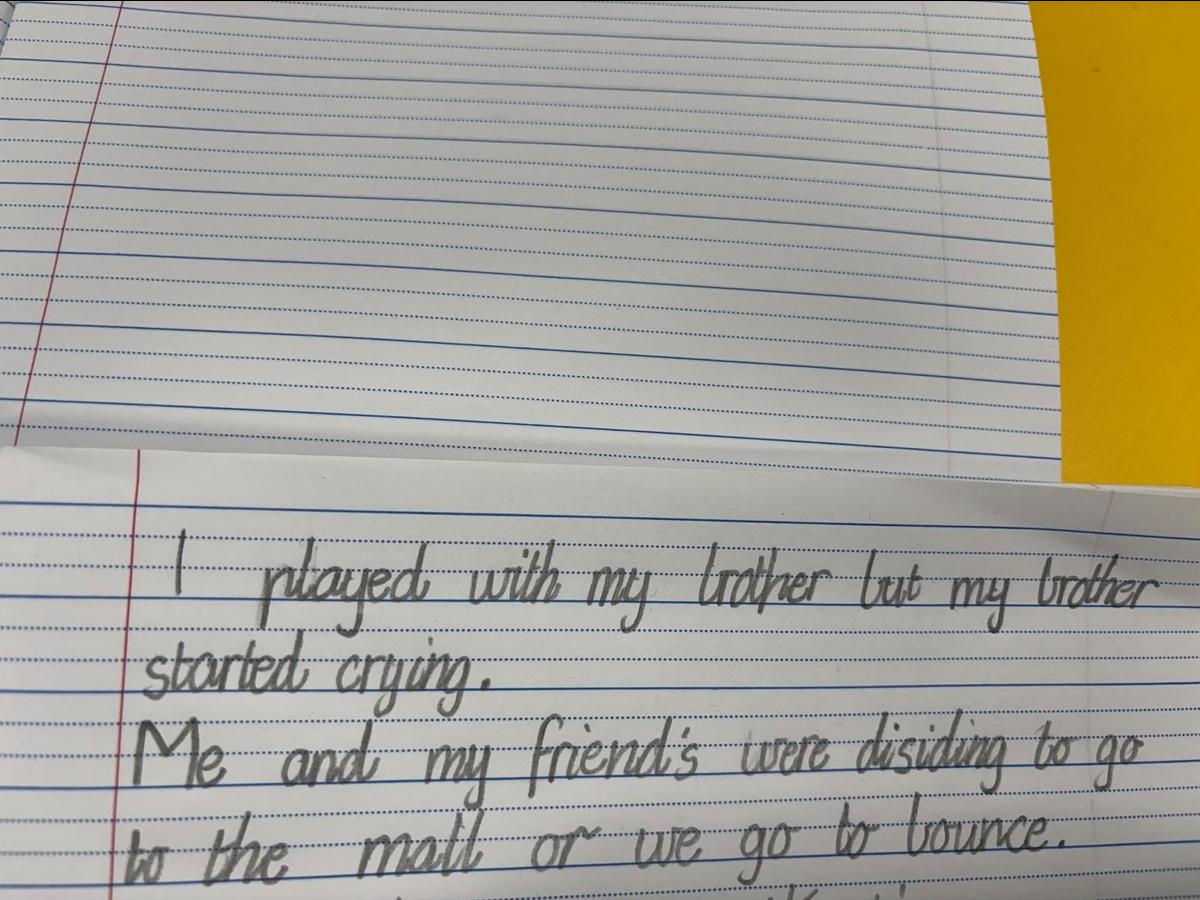 I played with my brother but my brother
started crying.
Me and my friend's were disiding to go
to the mall or we go to bounce.